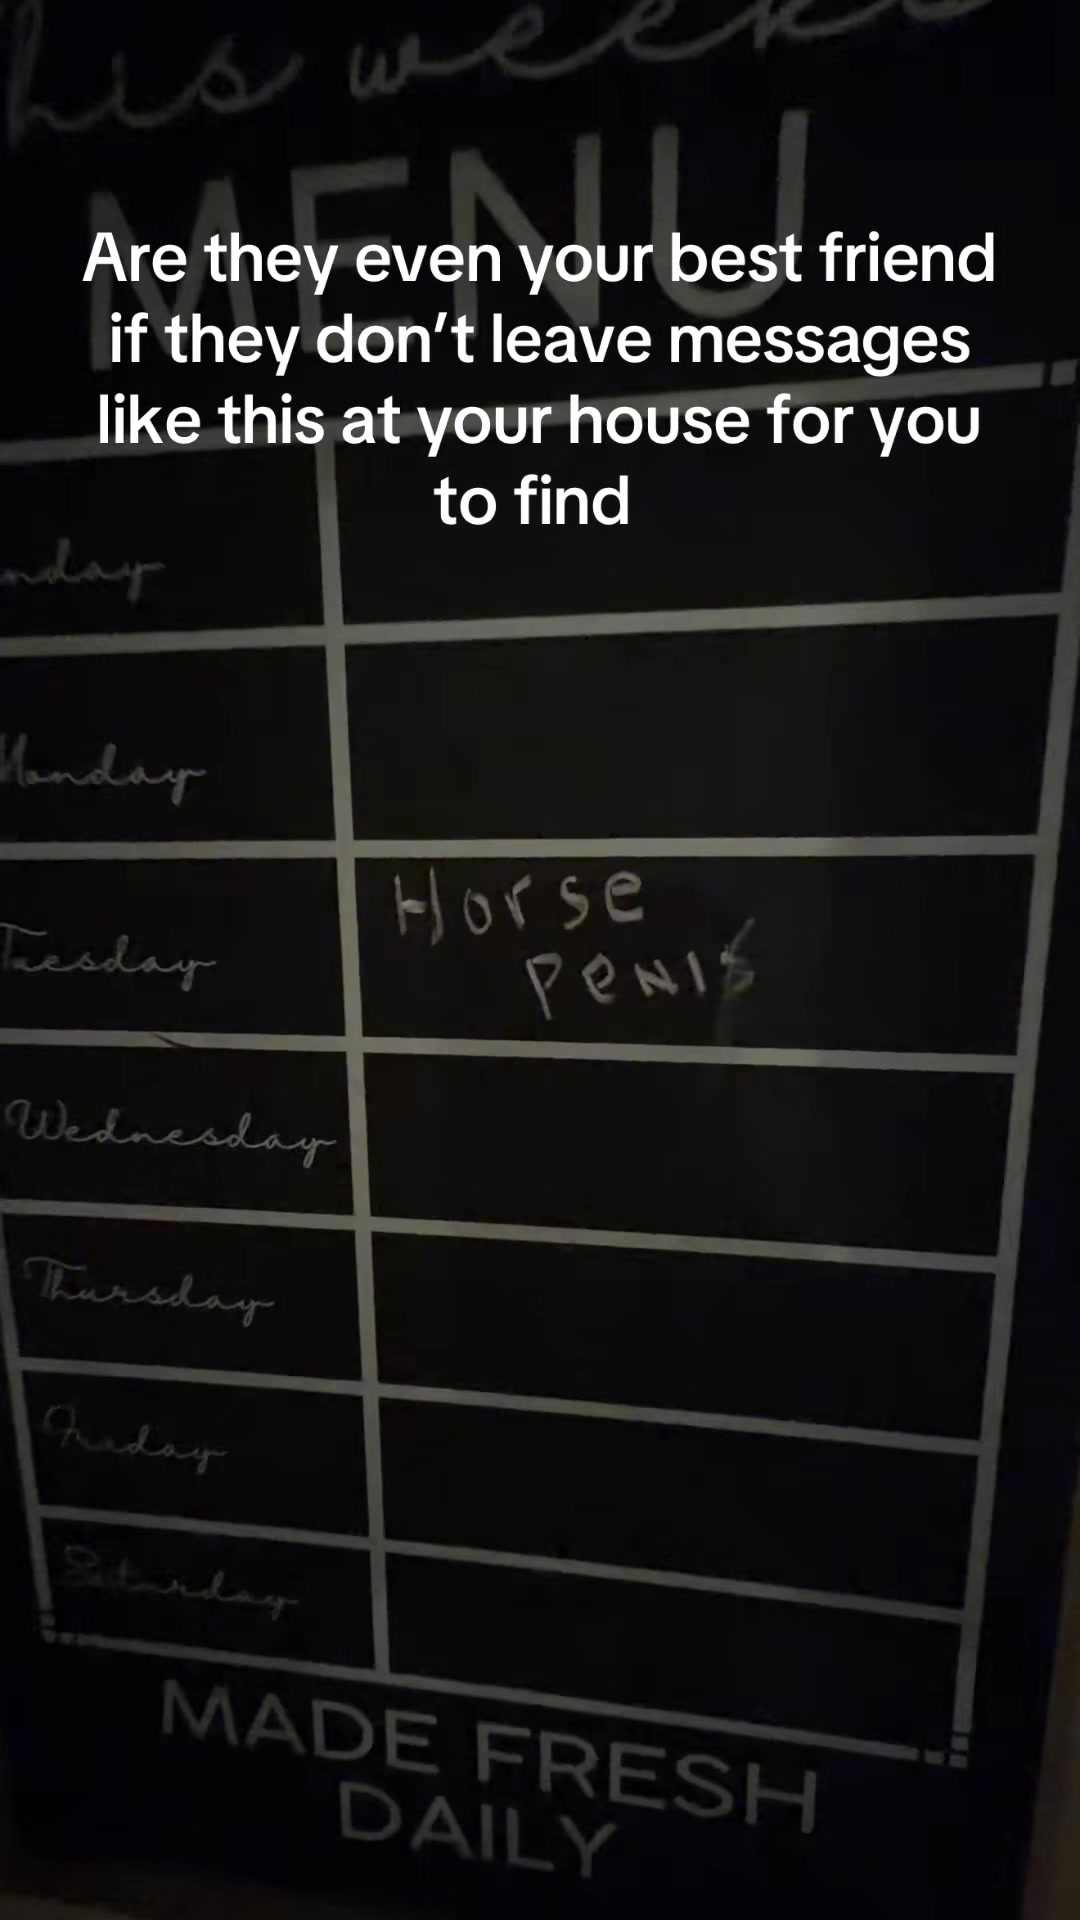 his week's
MENU
Are they even your best friend
if they don't leave messages
like this at your house for you
to find
nday
Monday
Tuesday
Horse
PENIS
Wednesday
Thursday
Friday
Saturday
MADE FRESH
DAILY